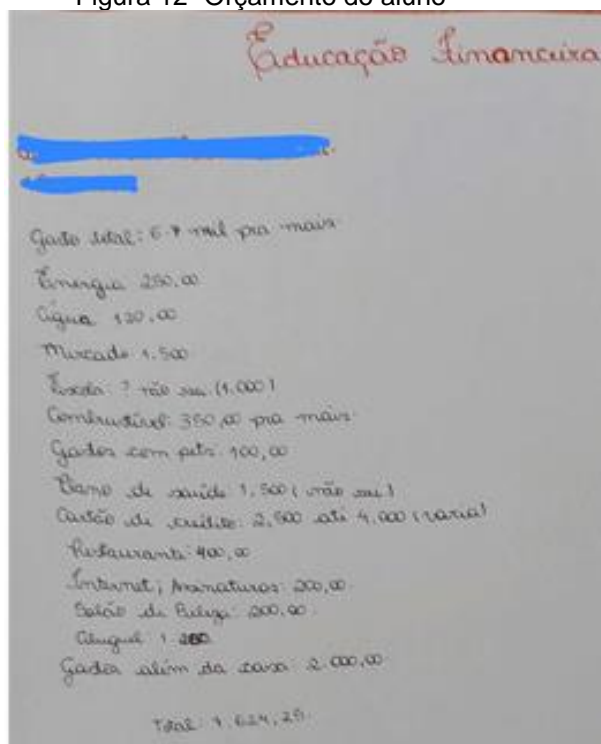 Figura 12- Orçamento do aluno
Educação Financeira
Gasto total: 6.7 mil pra mais.
Energia 250,00
Água 120,00
Mercado 1.500
Escola: ? não sei (1.000)
Combustível: 350,00 pra mais.
Gastos com pets: 100,00
Plano de saúde 1.500 (não sei)
Cartão de crédito: 2.500 até 4.000 (varia)
Restaurante: 400,00
Internet; Assinaturas: 200,00.
Salão de Beleza: 200,00.
Aluguel 1.200
Gastos além da casa: 2.000,00
Total: 7.624,25.